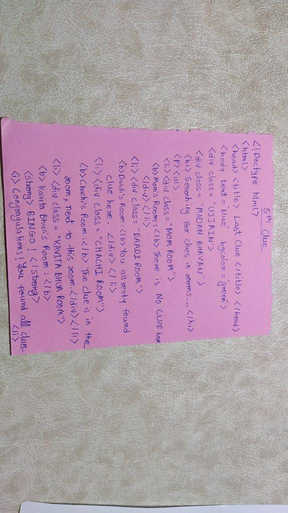 5th Clue
<!Doctype html>
<html>
<head> <title> Last Clue </title> </head>
<body text = "green" bgcolor = "green">
<div class = "UJJAIN">
<div class = "MADAN BHAVAN">
<h> Searching for clues in rooms... </h>
<p> <ul>
<li> <div class = "MOM ROOM">
<b> Mom's Room: </b> There is NO CLUE here
</div> </li>
<li> <div class = "DAADI ROOM">
<b> Daadi's Room <b> You already found
clue here. </div> </li>
<li> <div class = "CHACHI ROOM">
<b> Chachi's Room: <b> The clue is in the
room, next to this room. </div> </li>
<li> <div class = "KAVITA BHUA ROOM">
<b> Kavita Bhua's Room: </b>
<strong> BINGO! </strong>
<i> Congragulations! You found all clues. </i>